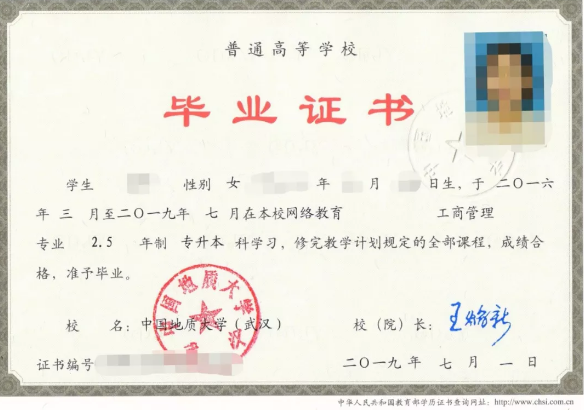 普通高等学校
毕业证书
学生 性别 女 年 月 日生，于 二〇一六
年 三 月至二〇一九年 七 月在本校网络教育 工商管理
专业 2.5 年制 专升本 科学习，修完教学计划规定的全部课程，成绩合
格，准予毕业。
中国地质大学(武汉)
校 名：中国地质大学（武汉） 校（院）长：
证书编号 二〇一九 年 七 月 一 日
中华人民共和国教育部学历证书查询网址：http://www.chsi.com.cn